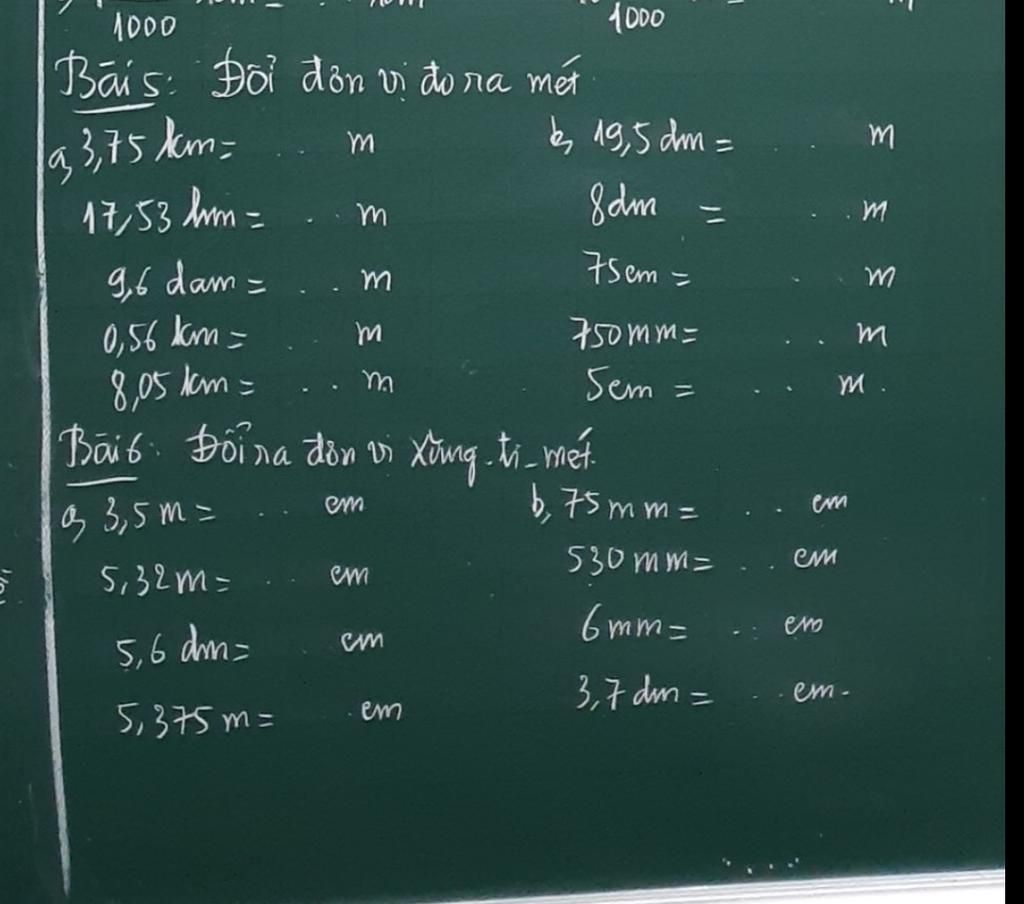 1000 1000
Bài 5: Đổi đơn vị đo ra mét
a, 3,75 km = .. m b, 19,5 dm = .. m
17,53 hm = .. m 8dm = .. m
9,6 dam = .. m 75cm = .. m
0,56 km = .. m 750mm = .. m
8,05 km = .. m 5cm = .. m.
Bài 6: Đổi ra đơn vị xăng-ti-mét.
a, 3,5 m = .. cm b, 75mm = .. cm
5,32m = .. cm 530mm = .. cm
5,6 dm = cm 6mm = .. cm
5,375 m = . cm 3,7 dm = .. cm.